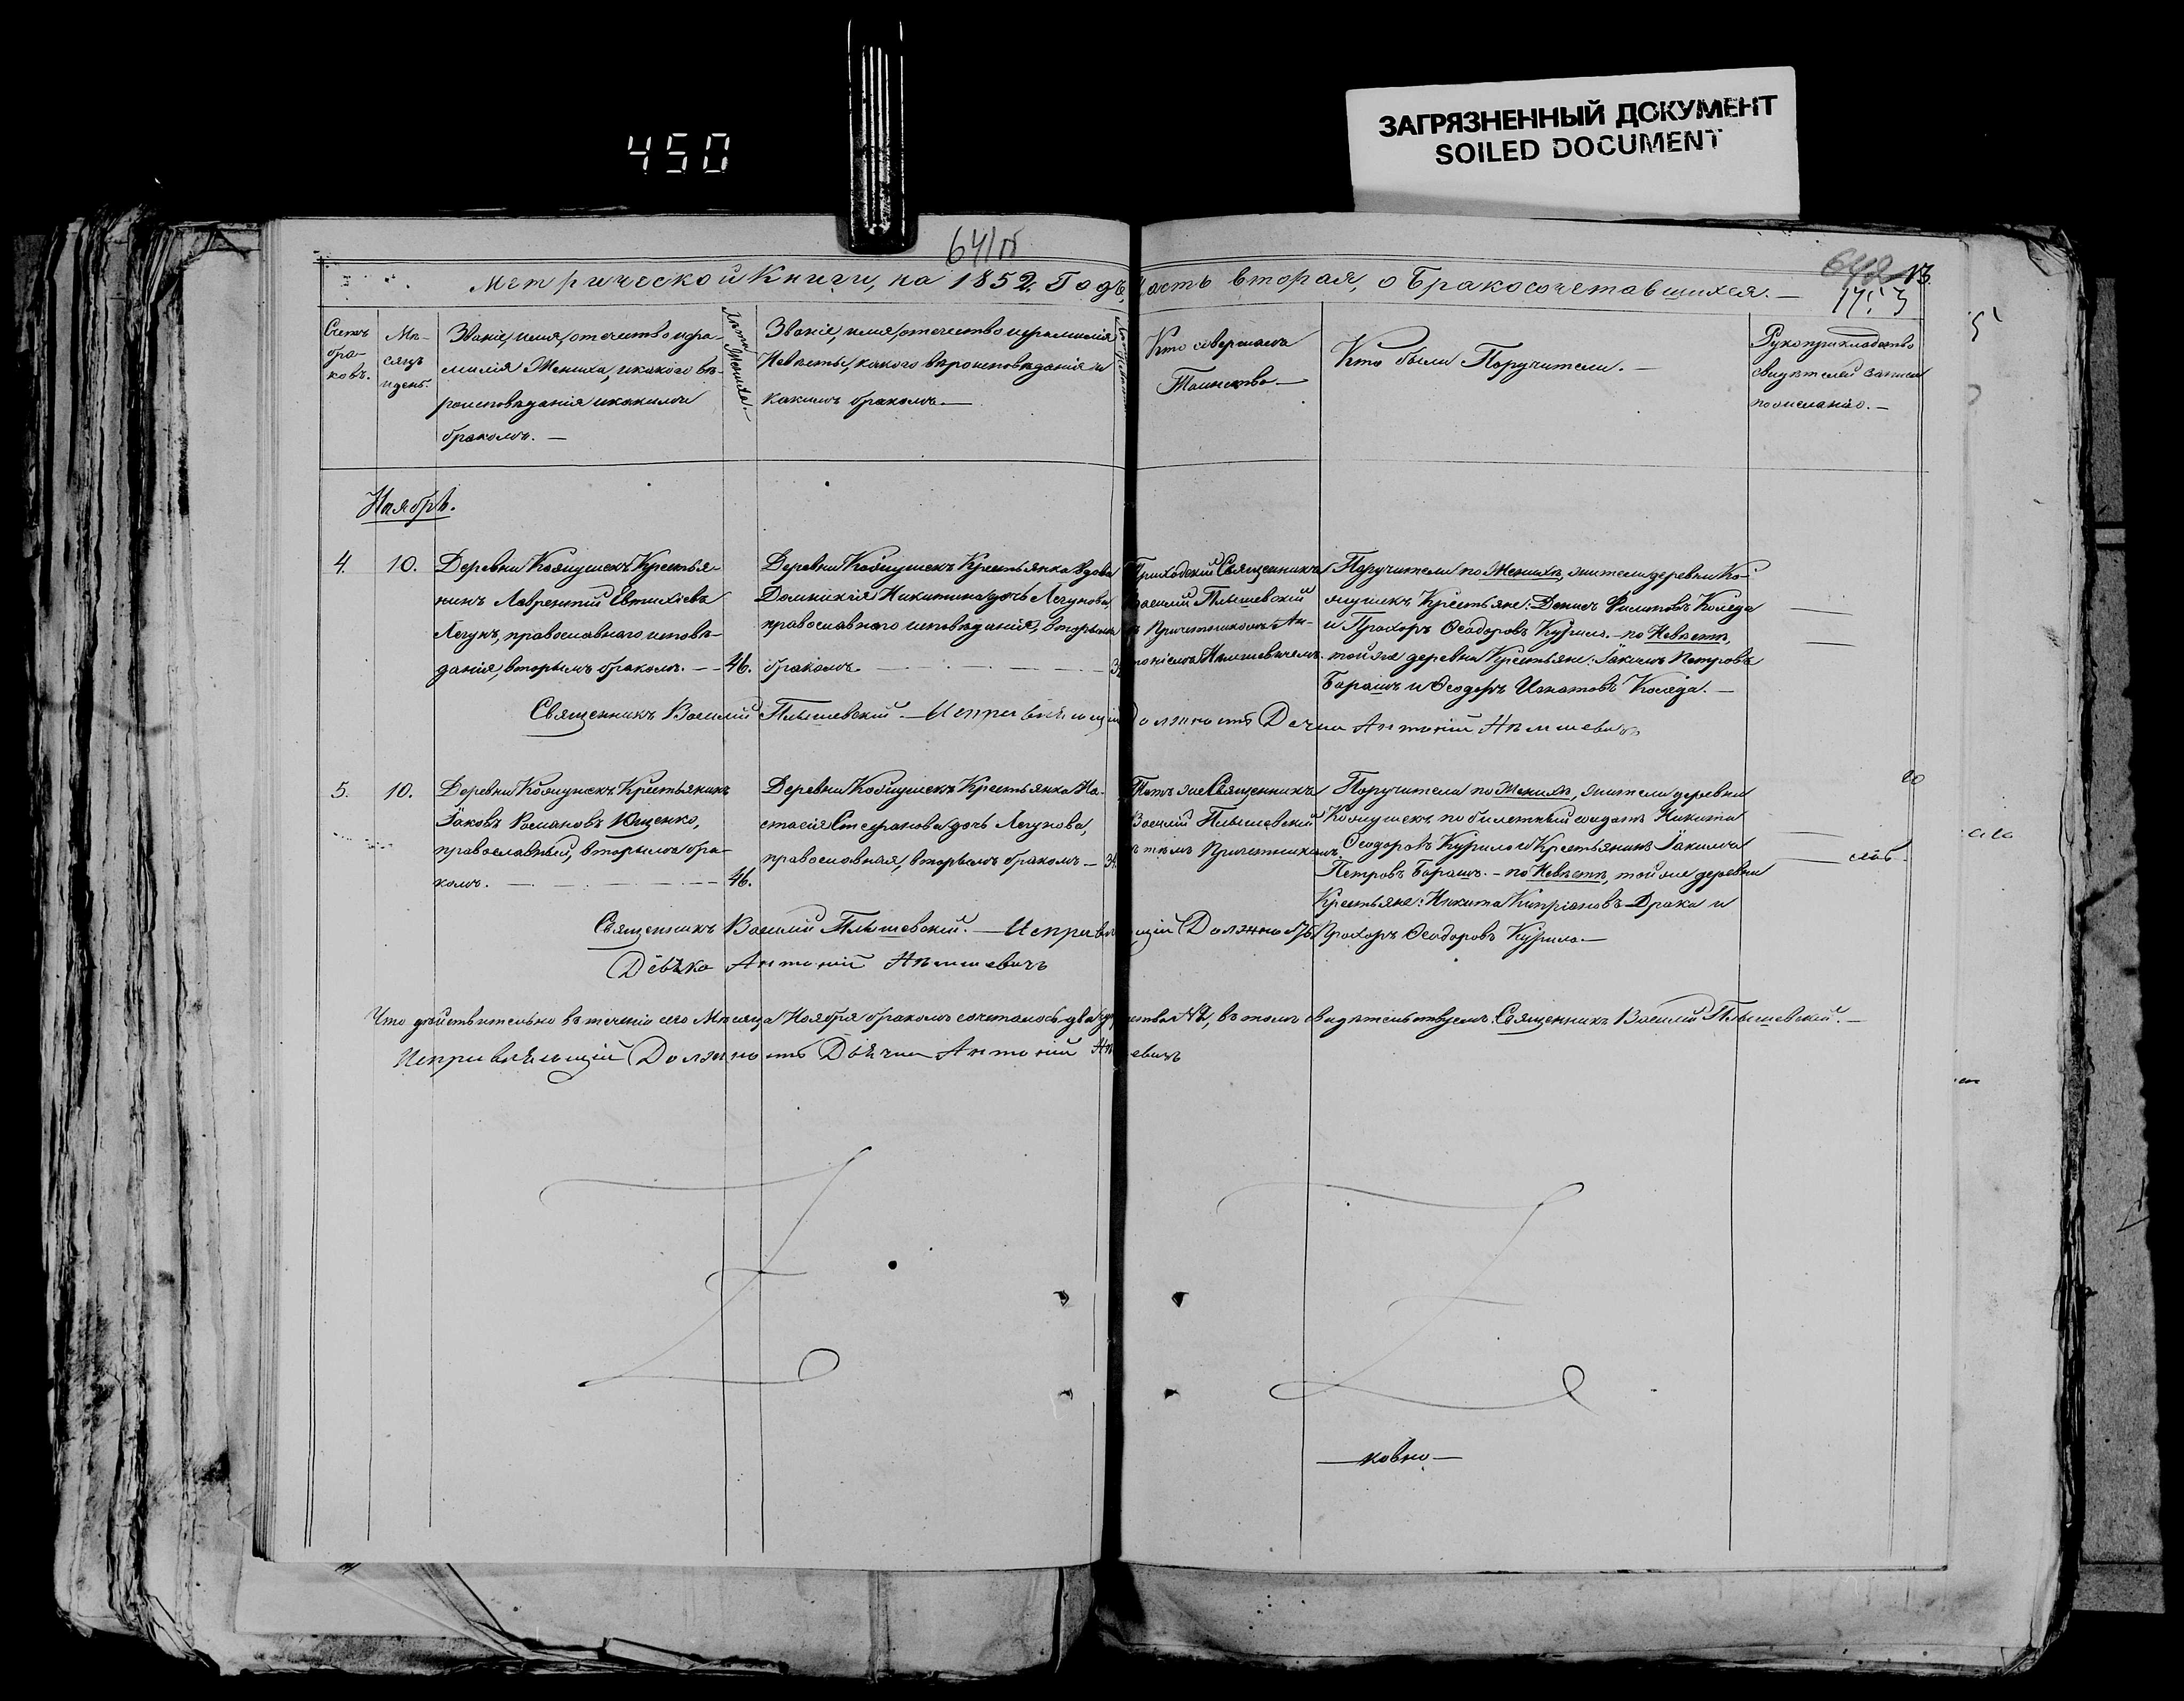 450
ЗАГРЯЗНЕННЫЙ ДОКУМЕНТ
SOILED DOCUMENT
Метрической Книги, на 1852 Годъ, часть вторая, о Бракосочетавшихся. —
Счетъ
бра-
ковъ.
Мѣ-
сяцъ
и день.
Званіе, имя, отечество и фа-
милія Жениха, и какого вѣ-
роисповѣданія и какимъ
бракомъ. —
Лѣта Жениха. —
Званіе, имя, отечество и фамилія
Невѣсты, какого вѣроисповѣданія и
какимъ бракомъ. —
Кто совершалъ
Таинство —
Кто были Поручители. —
Рукоприкладство
свидѣтелей записи
по желанію. —
Ноябрь.
4. 10.
Деревни Кожушекъ Крестья-
нинъ Лаврентій Евтихіевъ
Легунъ, православнаго исповѣ-
данія, вторымъ бракомъ. — 46.
Деревни Кожушекъ Крестьянка Вдова
Домникія Никитина дочь Легунова
православнаго исповѣданія, вторымъ
бракомъ. —
Приходскій Священникъ
Василій Плышевскій
съ Причетникомъ Ан-
тоніемъ Нѣмшевичемъ.
Поручители по Женихѣ, жители деревни Ко-
жушекъ Крестьяне: Денисъ Филиповъ Коляда
и Прохоръ Ѳеодоровъ Курило. — по Невѣстѣ,
той же деревни Крестьяне: Іакимъ Петровъ
Барашъ и Ѳеодоръ Игнатовъ Коляда. —
Священникъ Василій Плышевскій. — Исправляющій Должность Дьячка Антоній Нѣмшевичъ
5. 10.
Деревни Кожушекъ Крестьянинъ
Іаковъ Романовъ Ющенко,
православный, вторымъ бра-
комъ. — 46.
Деревни Кожушекъ Крестьянка На-
стасія Стефанова дочь Легунова,
православная, вторымъ бракомъ — 34.
Тотъ же Священникъ
Василій Плышевскій
съ тѣмъ Причетникомъ.
Поручители по Женихѣ, жители деревни
Кожушекъ по билетный солдатъ Никита
Ѳеодоровъ Курило и Крестьянинъ Іакимъ
Петровъ Барашъ. — по Невѣстѣ, той же деревни
Крестьяне: Никита Кипріановъ Драка и
Прохоръ Ѳеодоровъ Курило. —
Священникъ Василій Плышевскій. — Исправляющій Должность
Дьячка Антоній Нѣмшевичъ
Что дѣйствительно въ теченіи сего Мѣсяца Ноября бракомъ сочеталось два супружества № 2, въ томъ свидѣтельствуемъ. Священникъ Василій Плышевскій. —
Исправляющій Должность Дьячка Антоній Нѣмшевичъ
— ковно —